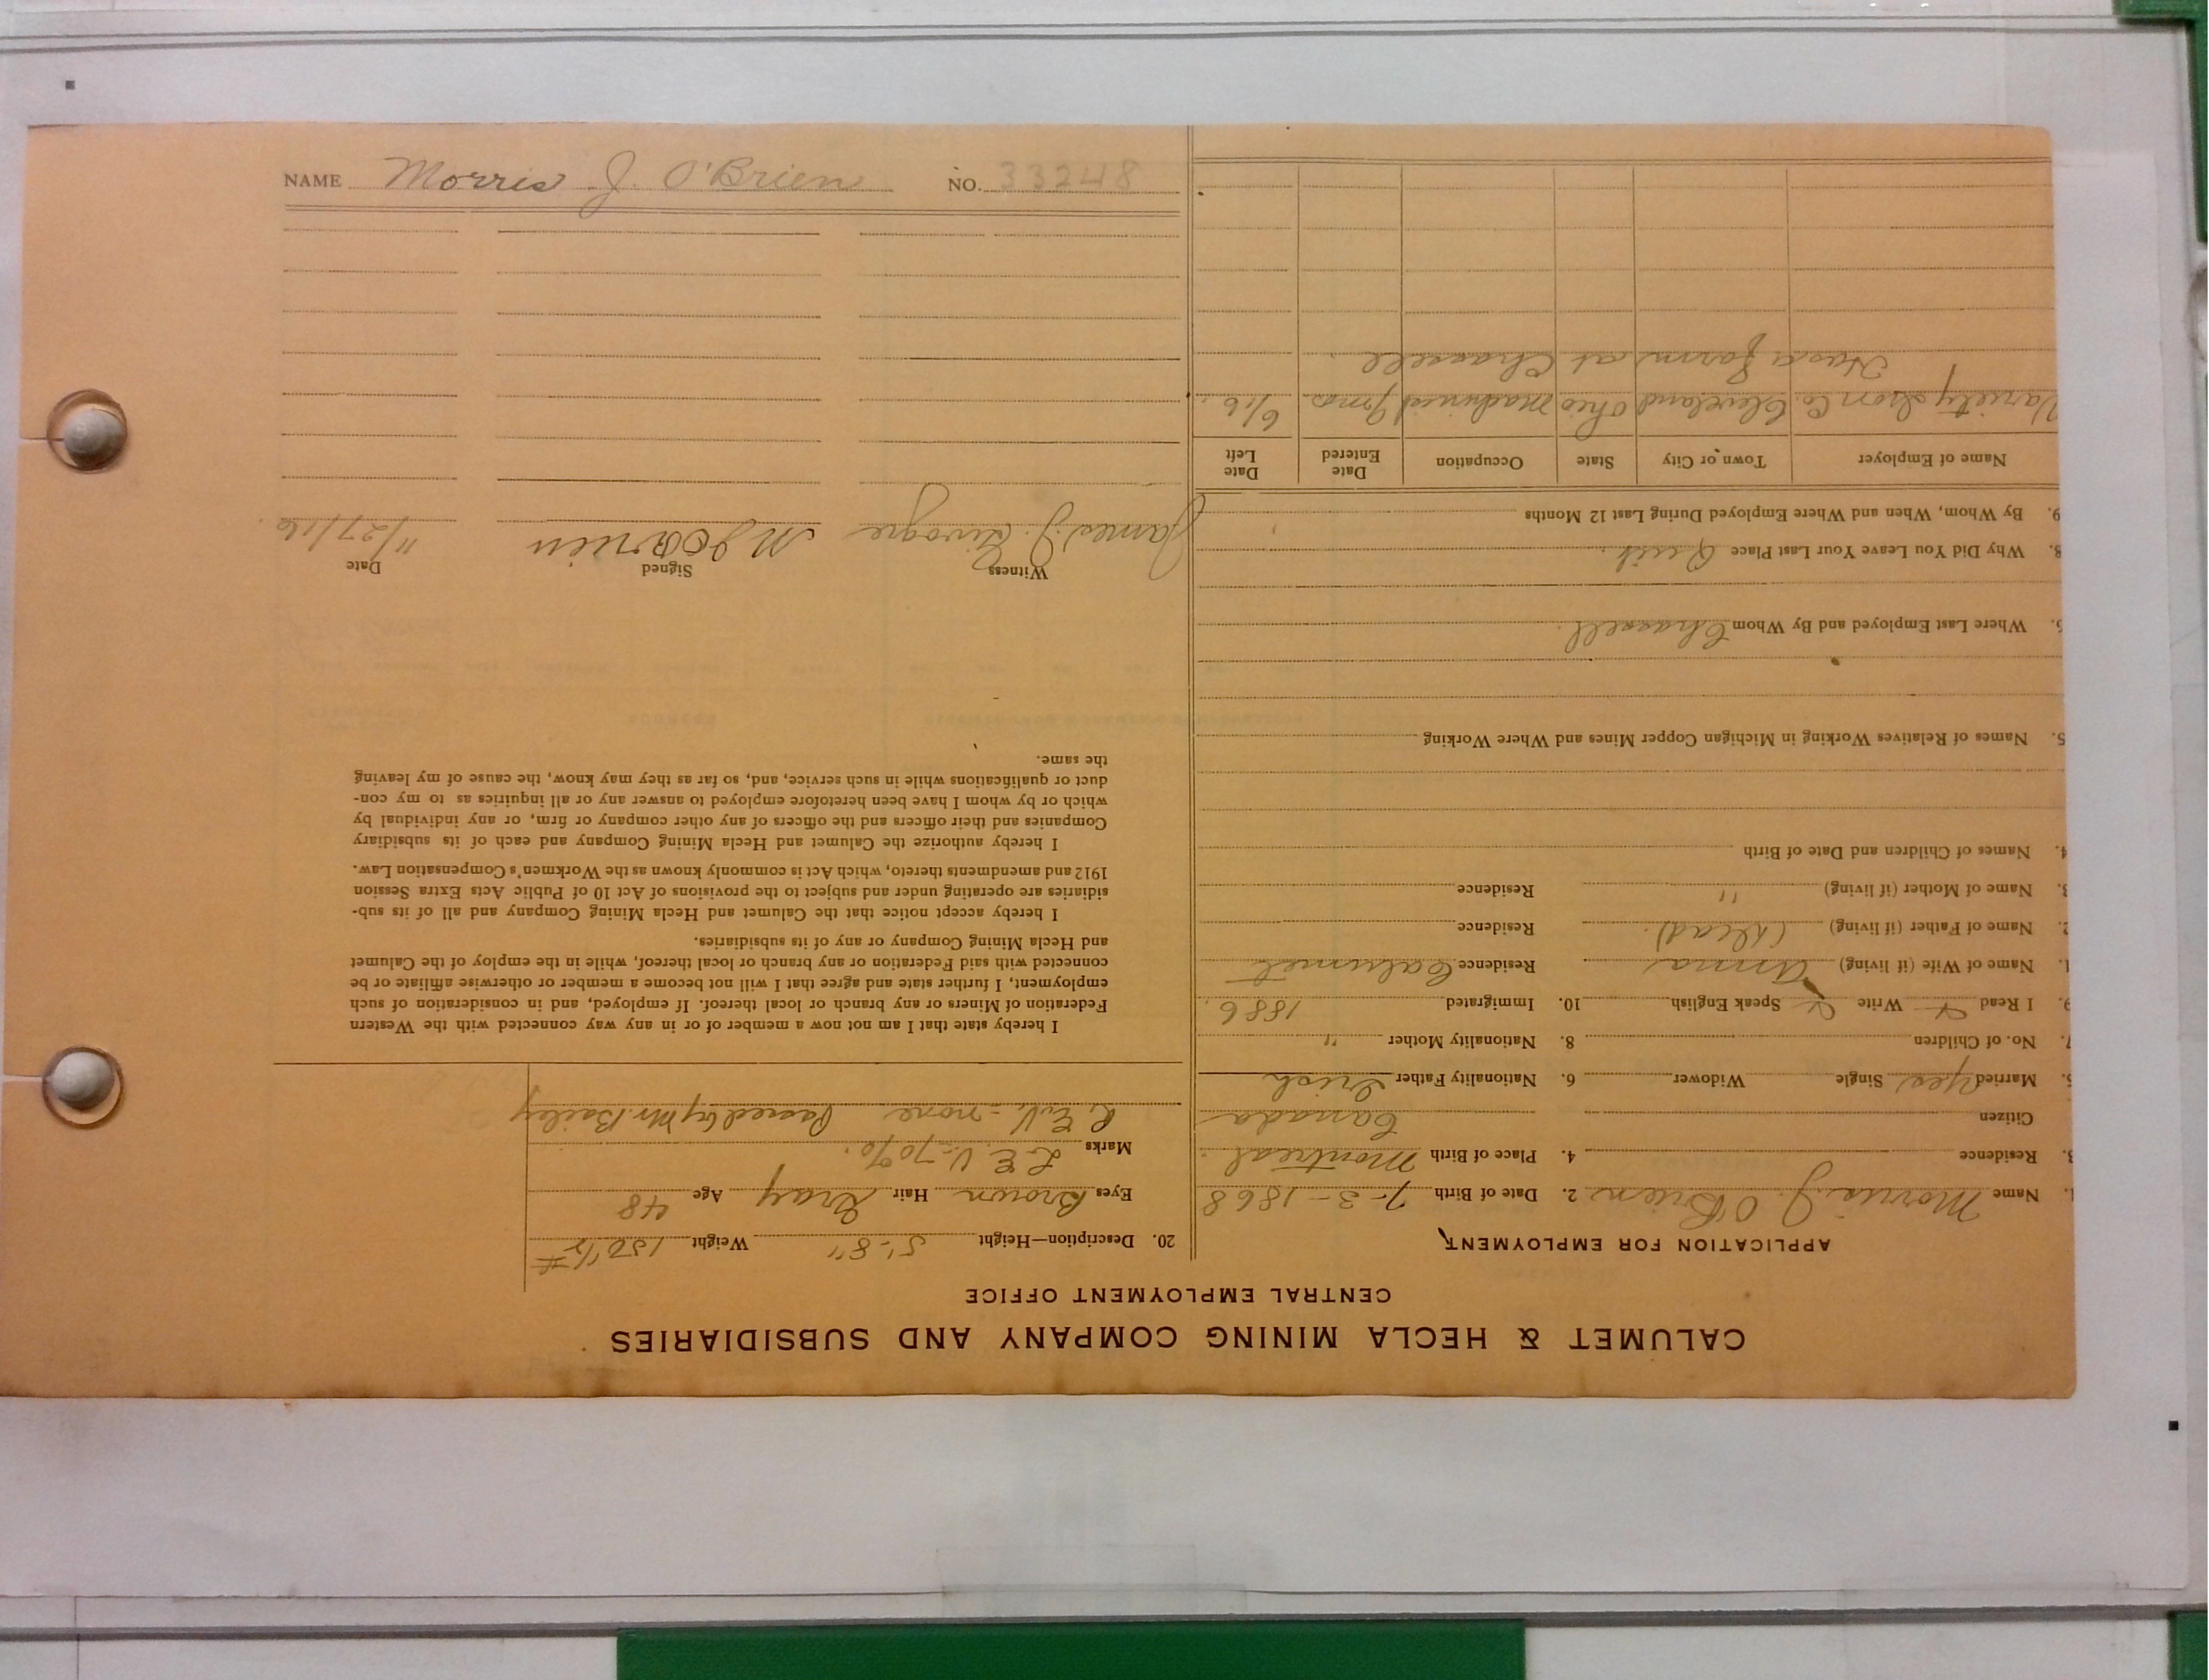 NAME Morris J. O'Brien NO. 33248
CALUMET & HECLA MINING COMPANY AND SUBSIDIARIES
CENTRAL EMPLOYMENT OFFICE
APPLICATION FOR EMPLOYMENT
1. Name Morris J. O'Brien 2. Date of Birth 7-3-1868
3. Residence 4. Place of Birth Montreal.
Citizen Canada
5. Married Yes Single Widower 6. Nationality Father Irish
7. No. of Children 8. Nationality Mother "
9. I Read Write Speak English 10. Immigrated 1886.
1. Name of Wife (if living) Anna Residence Calumet
2. Name of Father (if living) (dead). Residence
3. Name of Mother (if living) " Residence
4. Names of Children and Date of Birth
5. Names of Relatives Working in Michigan Copper Mines and Where Working
6. Where Last Employed and By Whom Chassell.
8. Why Did You Leave Your Last Place Quit.
9. By Whom, When and Where Employed During Last 12 Months
Name of Employer Town or City State Occupation Date Entered Date Left
Variety Iron Co. Cleveland Ohio Machinist 9 mos. 6/16.
Has a farm at Chassell.
20. Description—Height 5'-8" Weight 150 1/2 #
Eyes Brown Hair Gray Age 48
Marks L.E.V.-70%.
R.E.V.-none Passed by Mr. Bailey
I hereby state that I am not now a member of or in any way connected with the Western
Federation of Miners or any branch or local thereof. If employed, and in consideration of such
employment, I further state and agree that I will not become a member or otherwise affiliate or be
connected with said Federation or any branch or local thereof, while in the employ of the Calumet
and Hecla Mining Company or any of its subsidiaries.
I hereby accept notice that the Calumet and Hecla Mining Company and all of its sub-
sidiaries are operating under and subject to the provisions of Act 10 of Public Acts Extra Session
1912 and amendments thereto, which Act is commonly known as the Workmen's Compensation Law.
I hereby authorize the Calumet and Hecla Mining Company and each of its subsidiary
Companies and their officers and the officers of any other company or firm, or any individual by
which or by whom I have been heretofore employed to answer any or all inquiries as to my con-
duct or qualifications while in such service, and, so far as they may know, the cause of my leaving
the same.
Witness Signed Date
James J. M J OBrien 11/27/16.